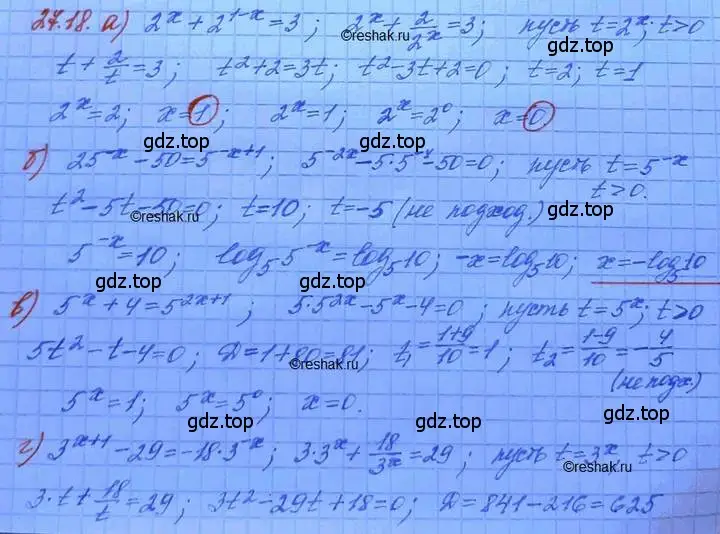 27.18. а) 2^x + 2^{1-x} = 3; 2^x + 2/2^x = 3; пусть t = 2^x; t > 0
©reshak.ru
t + 2/t = 3; t² + 2 = 3t; t² - 3t + 2 = 0; t = 2; t = 1
2^x = 2; x = 1; 2^x = 1; 2^x = 2^0; x = 0
gdz.top gdz.top
б) 25^{-x} - 50 = 5^{-x+1}; 5^{-2x} - 5·5^{-x} - 50 = 0; пусть t = 5^{-x}
t > 0.
t² - 5t - 50 = 0; t = 10; t = -5 (не подход.)
©reshak.ru
5^{-x} = 10; log₅ 5^{-x} = log₅ 10; -x = log₅ 10; x = -log₅ 10
gdz.top gdz.top
в) 5^x + 4 = 5^{2x+1}; 5·5^{2x} - 5^x - 4 = 0; пусть t = 5^x; t > 0
5t² - t - 4 = 0; D = 1 + 80 = 81; t₁ = (1+9)/10 = 1; t₂ = (1-9)/10 = -4/5
©reshak.ru
(не подх.)
5^x = 1; 5^x = 5^0; x = 0.
gdz.top gdz.top
г) 3^{x+1} - 29 = -18·3^{-x}; 3·3^x + 18/3^x = 29; пусть t = 3^x, t > 0
©reshak.ru
3·t + 18/t = 29; 3t² - 29t + 18 = 0; D = 841 - 216 = 625
gdz.top gdz.top